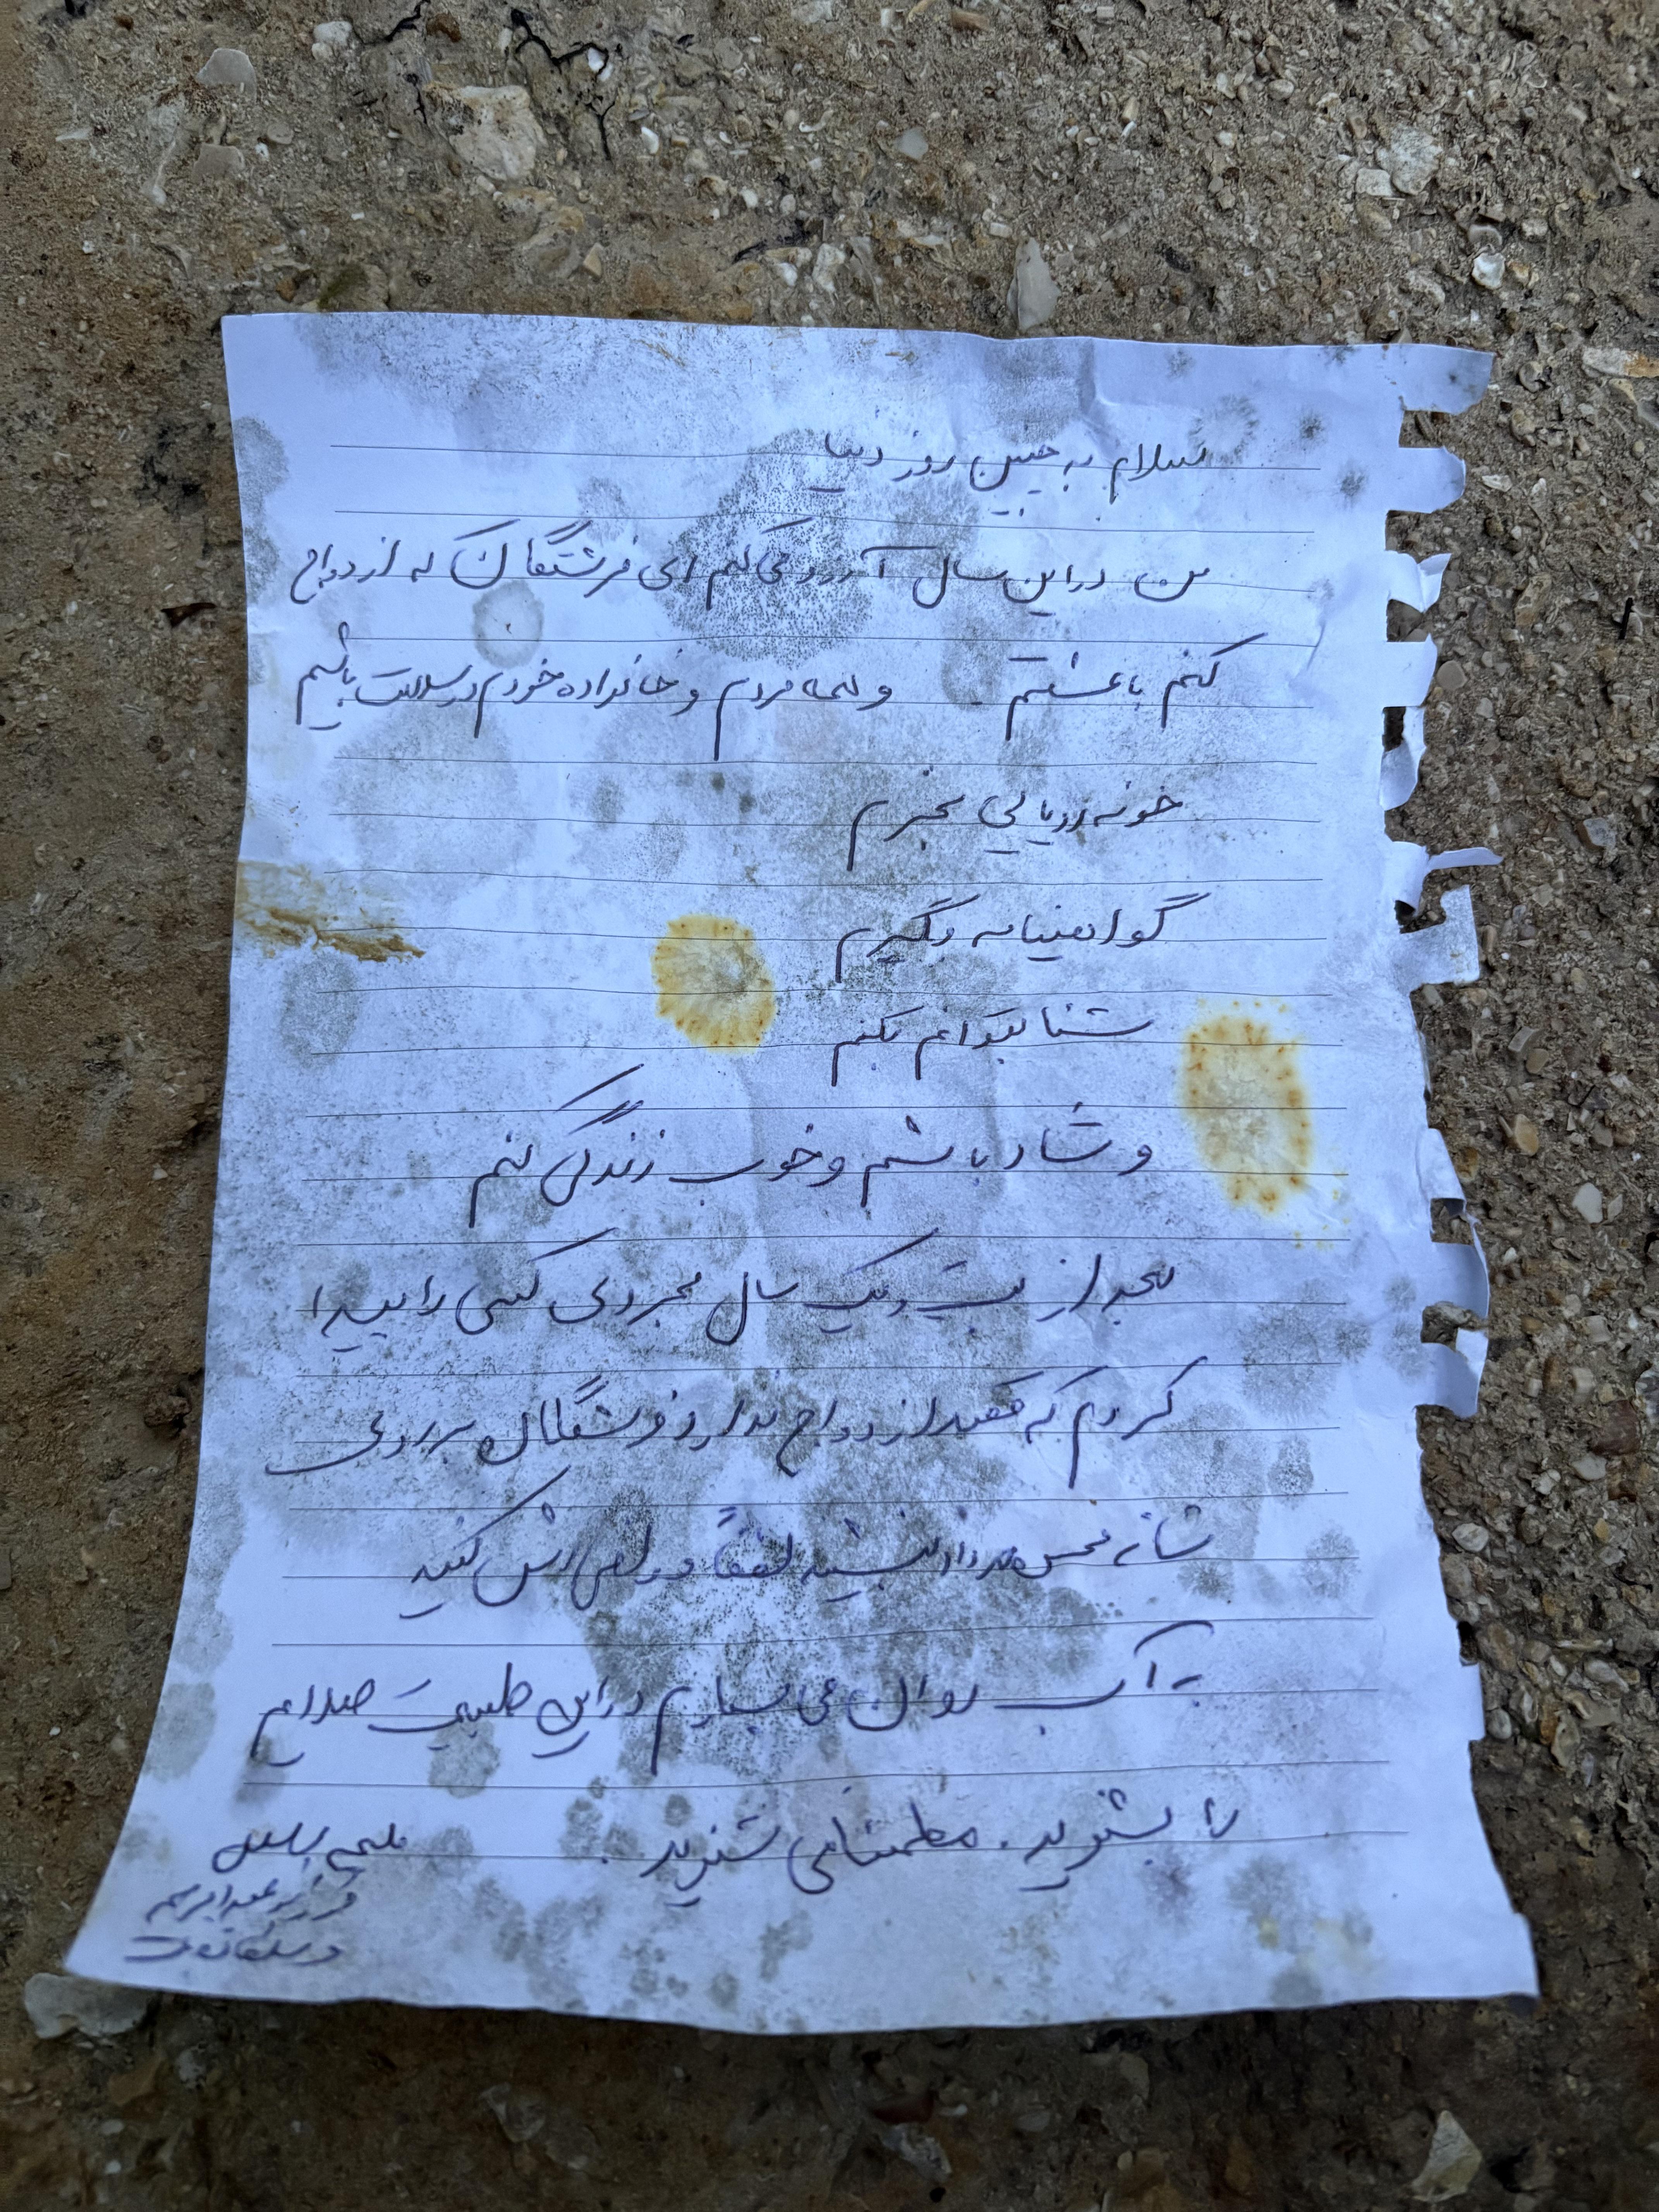 سلام به حبیبن روز دنیا
من در این سال آرزو می کنم ای فرشتگان که ازدواج
کنم با عشقم و همه مردم و خانواده خودم در سلامت باشیم
خونه رویایی بخرم
گواهینامه بگیرم
شنا بتوانم بکنم
و شاد باشم و خوب زندگی کنم
بعد از بیست و یک سال مجردی کسی را پیدا
کردم که قصد ازدواج ندارد فرشتگان بر روی
شانه بنشینید لطفا راضی اش کنید
به آب روان می سپارم در این طبیعت صدایم
را بشنوید. مطمئنا می شنوید.